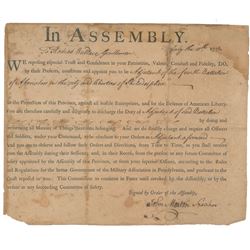 In ASSEMBLY.
July the
To Gentleman
WE reposing especial Trust and Confidence in your Patriotism, Valour, Conduct and Fidelity, DO,
by these Presents, constitute and appoint you to be Adjutant of the fourth Battalion
of in the city and liberties of Philadelphia
for the Protection of this Province, against all hostile Enterprizes, and for the Defence of American Liberty.
You are therefore carefully and diligently to discharge the Duty of Adjutant of said Battalion
as aforesaid by doing
and performing all Manner of Things thereunto belonging. And we do strictly charge and require all Officers
and Soldiers, under your Command, to be obedient to your Orders as Adjutant aforesaid
And you are to observe and follow such Orders and Directions, from Time to Time, as you shall receive
from the Assembly during their Sessions, and, in their Recess, from the present or any future Committee of
Safety appointed by the Assembly of this Province, or from your superior Officers, according to the
Rules and Regulations for the better Government of the Military Association in Pennsylvania, and pursuant to
the Trust reposed in you. This Commission to continue in Force until revoked by the Assembly, or by the
present or any succeeding Committee of Safety.
Signed by Order of the Assembly,
John Morton Speaker